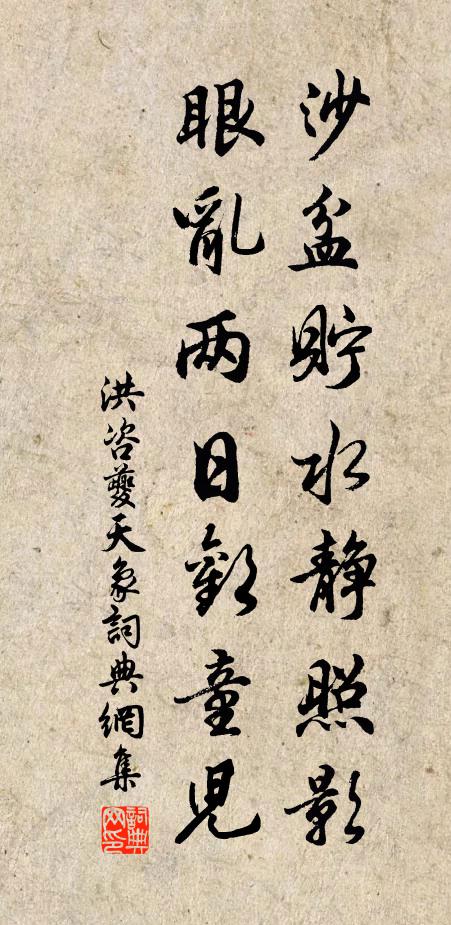 沙盆貯水靜照影
眼亂两日歡童兒
洪咨夔天象詞典網集
詞典网印